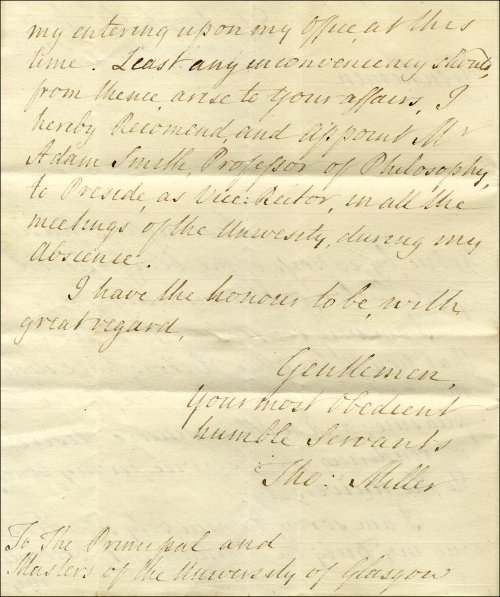 my entering upon my Office, at this
time. Least any inconveniencay should,
from thence, arise to your affairs, I
hereby Recomend, and appoint Mr
Adam Smith, Professor of Philosophy,
to Preside, as Vice-Rector, in all the
meetings of the University, during my
Absience.
I have the honour to be, with
great regard,
Gentlemen,
Your most Obedient
humble Servants
Tho: Miller
To The Principal and
Masters of the University of Glasgow